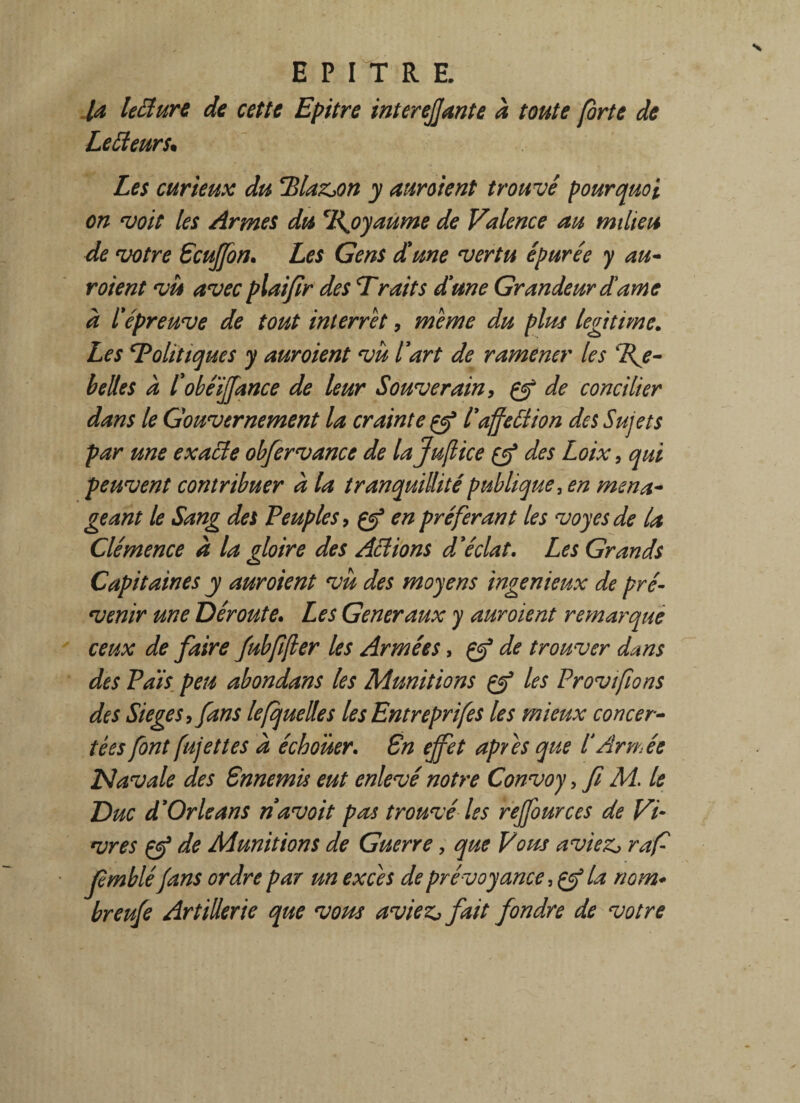 EPITRE.
la lecture de cette Epitre intereſſante à toute ſorte de
Lecteurs.
Les curieux du Blazon y auroient trouvé pourquoi
on voit les Armes du Royaume de Valence au milieu
de votre Ecuſſon. Les Gens d'une vertu épurée y au-
roient vû avec plaiſir des Traits d'une Grandeur d'ame
à l'épreuve de tout interrêt, même du plus legitime.
Les Politiques y auroient vû l'art de ramener les Re-
belles à l'obéïſſance de leur Souverain, & de concilier
dans le Gouvernement la crainte & l'affection des Sujets
par une exacte obſervance de la Juſtice & des Loix, qui
peuvent contribuer à la tranquillité publique, en mena-
geant le Sang des Peuples, & en préferant les voyes de la
Clémence à la gloire des Actions d'éclat. Les Grands
Capitaines y auroient vû des moyens ingenieux de pré-
venir une Déroute. Les Generaux y auroient remarqué
ceux de faire ſubſiſter les Armées, & de trouver dans
des Païs peu abondans les Munitions & les Proviſions
des Sieges, ſans leſquelles les Entrepriſes les mieux concer-
tées ſont ſujettes à échoüer. En effet après que l'Armée
Navale des Ennemis eut enlevé notre Convoy, ſi M. le
Duc d'Orleans n'avoit pas trouvé les reſſources de Vi-
vres & de Munitions de Guerre, que Vous aviez raſ-
ſemblé ſans ordre par un excès de prévoyance, & la nom-
breuſe Artillerie que vous aviez fait fondre de votre